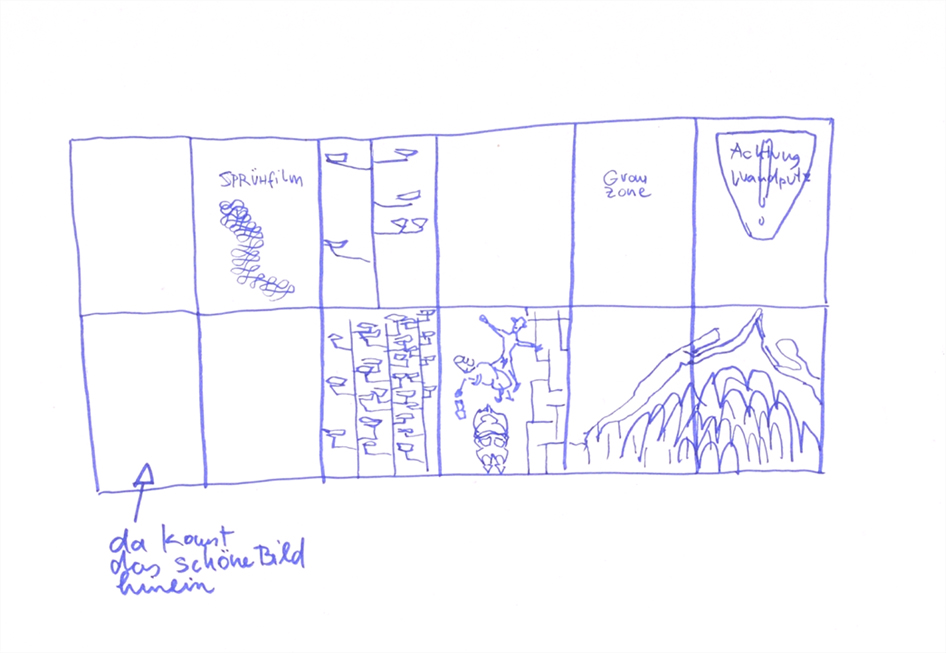 SPRÜHFILM
Grau
zone
Achtung
Wandputz
da kommt
das schöne Bild
hinein